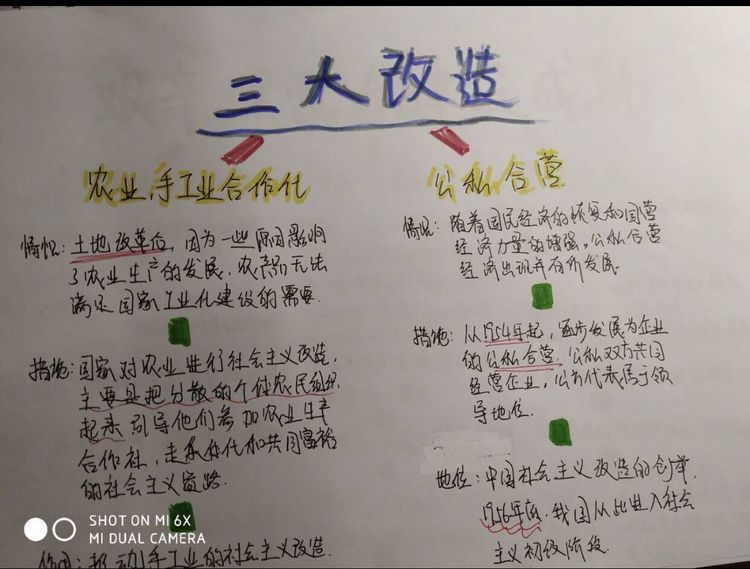 三大改造
农业,手工业合作化
情况:土地改革后,因为一些原因影响
了农业生产的发展,农产品无法
满足国家工业化建设的需要.
措施:国家对农业进行社会主义改造,
主要是把分散的个体农民组织
起来 引导他们参加农业生产
合作社,走集体化和共同富裕
的社会主义道路.
作用:推动手工业的社会主义改造.
公私合营
情况:随着国民经济的恢复和国营
经济力量的增强,公私合营
经济出现并有所发展
措施:从1954年起,逐步发展为企业
的公私合营,公私双方共同
经营企业,公方代表居于领
导地位.
地位:中国社会主义改造的创举.
1956年底,我国从此进入社会
主义初级阶段.
SHOT ON MI 6X
MI DUAL CAMERA